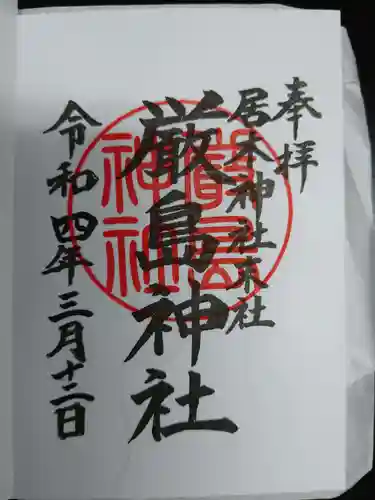 奉拝
居木神社末社
厳島神社
嚴島
神社
令和四年三月十二日